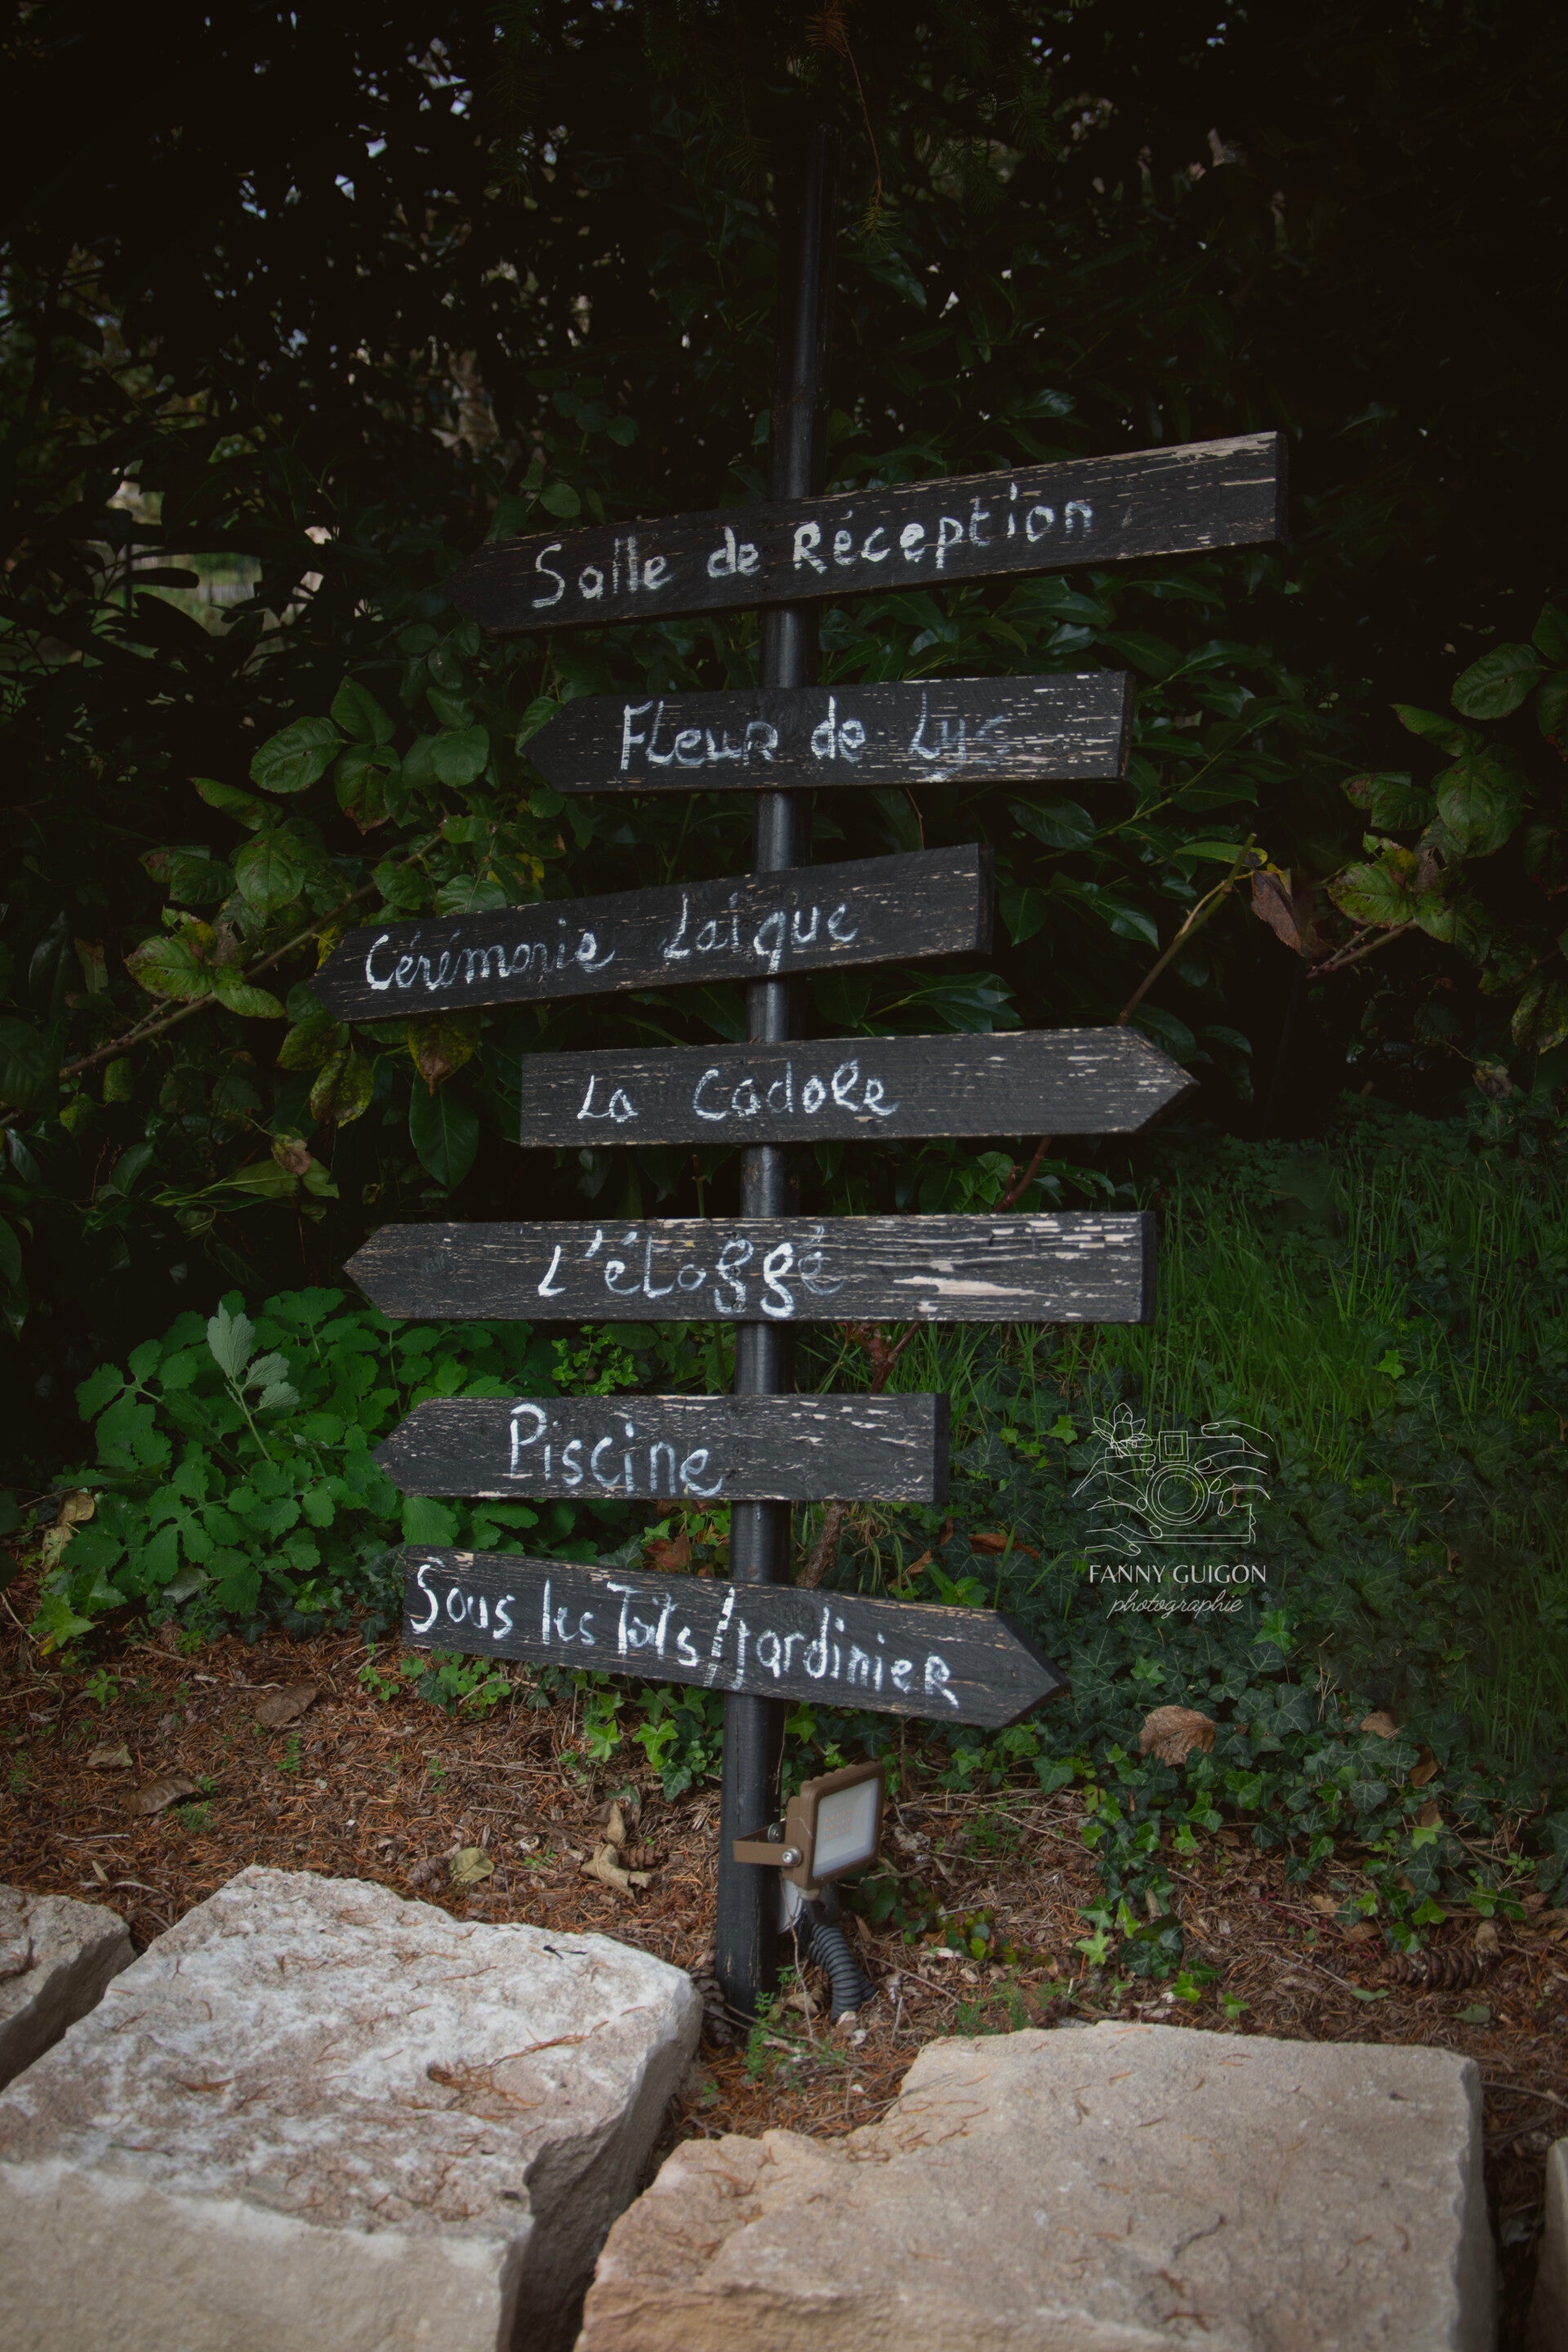 Salle de Réception
Fleur de Lys
Cérémonie Laïque
La Cadole
L'étaggé
Piscine
Sous les Toits/jardinier
FANNY GUIGON
photographie